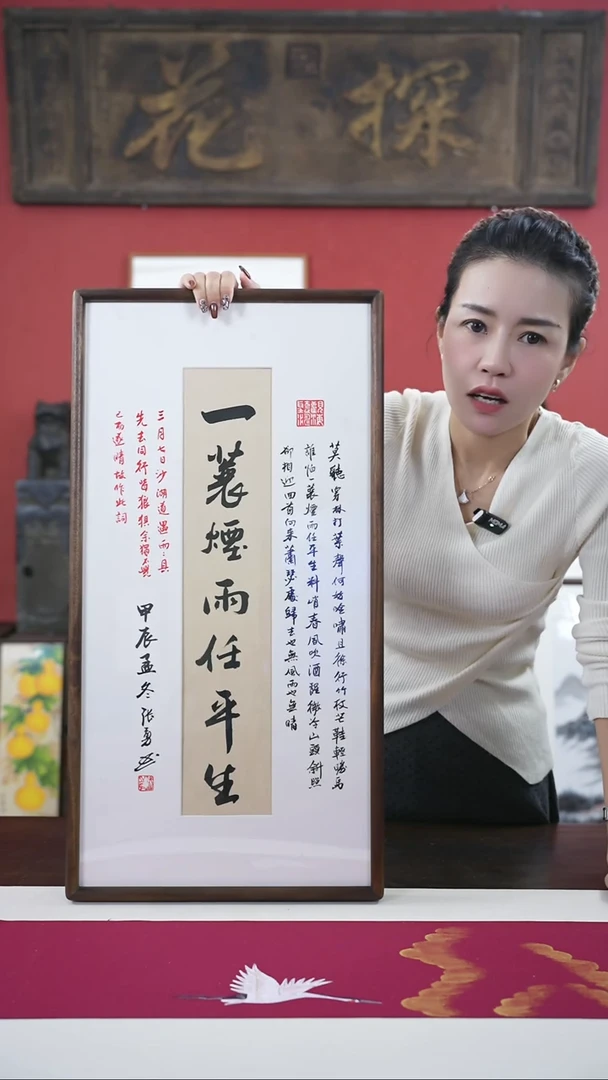 探花
莫聽穿林打葉聲何妨吟嘯且徐行竹杖芒鞋輕勝馬
誰怕一蓑煙雨任平生料峭春風吹酒醒微冷山頭斜照
卻相迎回首向來蕭瑟處歸去也無風雨也無晴
一蓑煙雨任平生
三月七日沙湖道遇雨〻具
先去同行皆狼狽余獨不覺
已而遂晴故作此詞
甲辰孟冬張勇